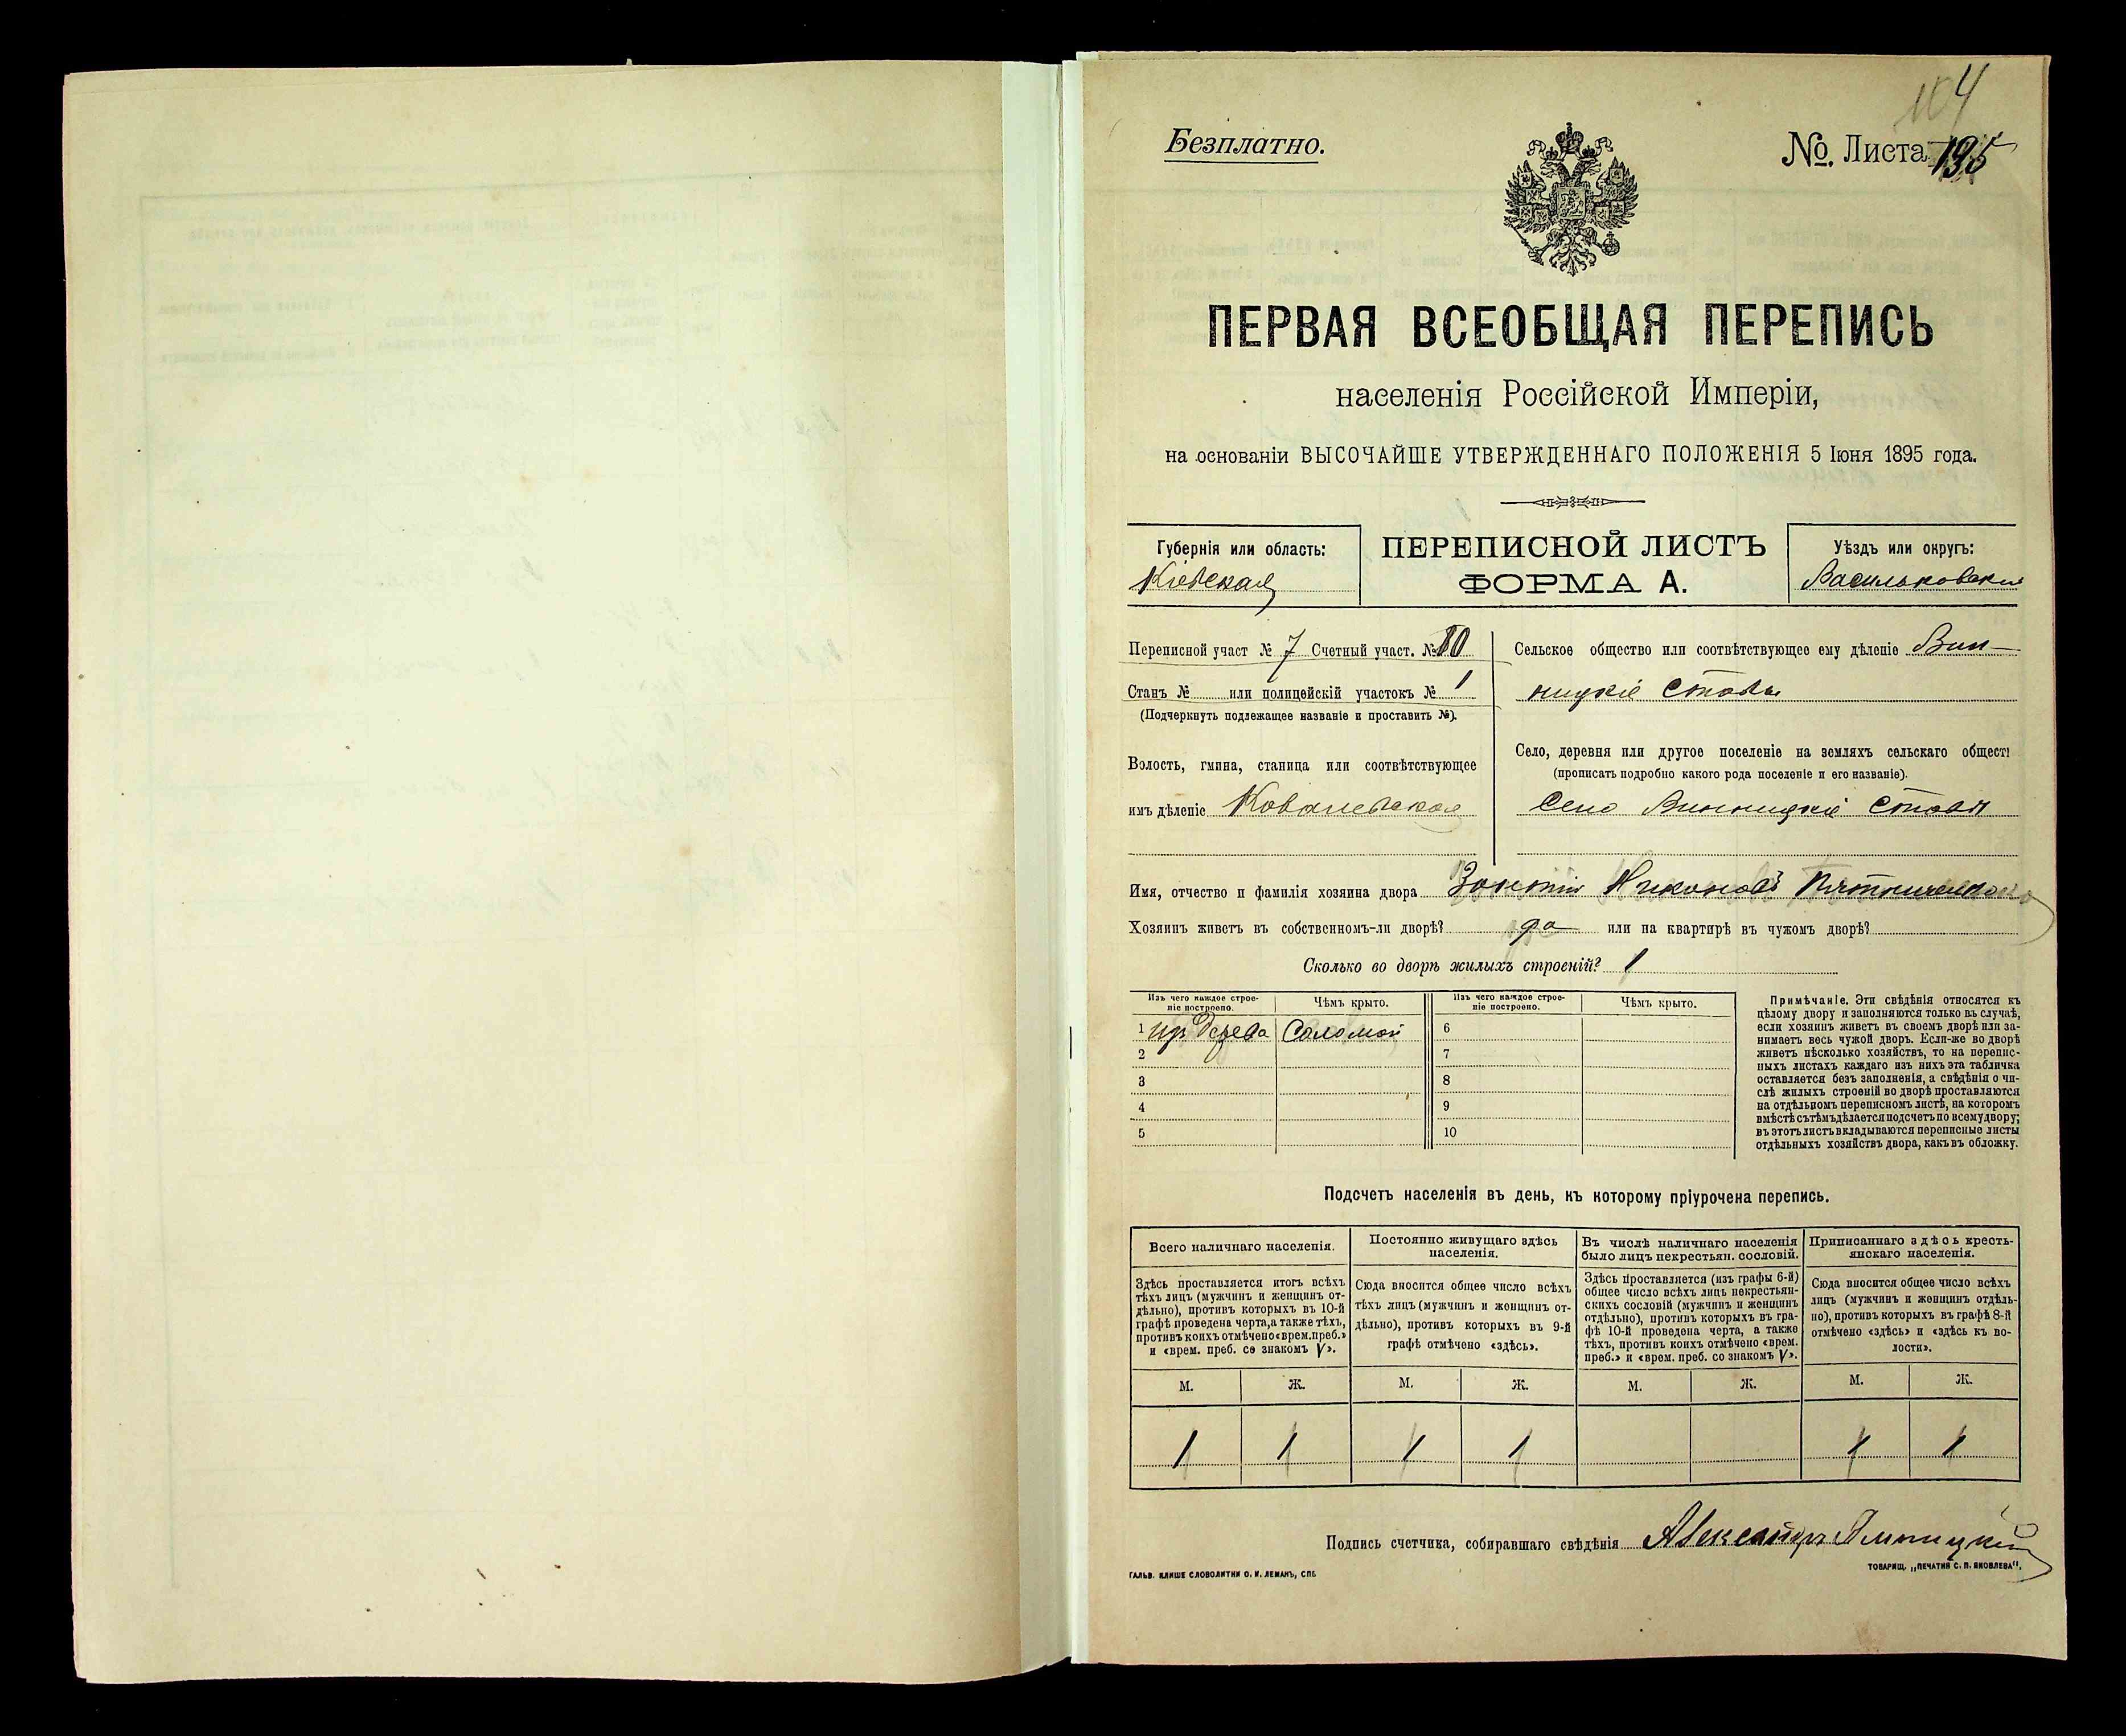 104
Безплатно.
№. Листа 195
ПЕРВАЯ ВСЕОБЩАЯ ПЕРЕПИСЬ
населенія Россійской Имперіи,
на основаніи ВЫСОЧАЙШЕ УТВЕРЖДЕННАГО ПОЛОЖЕНІЯ 5 Іюня 1895 года.
Губернія или область:
Кіевская
ПЕРЕПИСНОЙ ЛИСТЪ
ФОРМА А.
Уѣздъ или округъ:
Васильковскій
Переписной участ № 7 Счетный участ. № 10
Станъ № или полицейскій участокъ № 1
(Подчеркнуть подлежащее названіе и проставить №).
Волость, гмина, станица или соотвѣтствующее
имъ дѣленіе Ковалевская
Сельское общество или соотвѣтствующее ему дѣленіе Вин-
ницкіе Ставы
Село, деревня или другое поселеніе на земляхъ сельскаго общест
(прописать подробно какого рода поселеніе и его названіе).
Село Винницкіе Ставы
Имя, отчество и фамилія хозяина двора Никоновъ
Хозяинъ живетъ въ собственномъ-ли дворѣ? да или на квартирѣ въ чужомъ дворѣ?
Сколько во дворѣ жилыхъ строеній? 1
Изъ чего каждое строе-
ніе построено.
Чѣмъ крыто.
Изъ чего каждое строе-
ніе построено.
Чѣмъ крыто.
1 изъ Дерева Соломой 6
2 7
3 8
4 9
5 10
Примѣчаніе. Эти свѣдѣнія относятся къ
цѣлому двору и заполняются только въ случаѣ,
если хозяинъ живетъ въ своемъ дворѣ или за-
нимаетъ весь чужой дворъ. Если-же во дворѣ
живетъ нѣсколько хозяйствъ, то на перепис-
ныхъ листахъ каждаго изъ нихъ эта табличка
оставляется безъ заполненія, а свѣдѣнія о чи-
слѣ жилыхъ строеній во дворѣ проставляются
на отдѣльномъ переписномъ листѣ, на которомъ
вмѣстѣ съ тѣмъ дѣлается подсчетъ по всему двору;
въ этотъ листъ вкладываются переписные листы
отдѣльныхъ хозяйствъ двора, какъ въ обложку.
Подсчетъ населенія въ день, къ которому пріурочена перепись.
Всего наличнаго населенія.
Здѣсь проставляется итогъ всѣхъ
тѣхъ лицъ (мужчинъ и женщинъ от-
дѣльно), противъ которыхъ въ 10-й
графѣ проведена черта, а также тѣхъ,
противъ коихъ отмѣчено «врем. преб.»
и «врем. преб. со знакомъ V».
Постоянно живущаго здѣсь
населенія.
Сюда вносится общее число всѣхъ
тѣхъ лицъ (мужчинъ и женщинъ от-
дѣльно), противъ которыхъ въ 9-й
графѣ отмѣчено «здѣсь».
Въ числѣ наличнаго населенія
было лицъ некрестьян. сословій.
Здѣсь проставляется (изъ графы 6-й)
общее число всѣхъ лицъ некрестьян-
скихъ сословій (мужчинъ и женщинъ
отдѣльно), противъ которыхъ въ гра-
фѣ 10-й проведена черта, а также
тѣхъ, противъ коихъ отмѣчено «врем.
преб.» и «врем. преб. со знакомъ V».
Приписаннаго здѣсь кресть-
янскаго населенія.
Сюда вносится общее число всѣхъ
лицъ (мужчинъ и женщинъ отдѣль-
но), противъ которыхъ въ графѣ 8-й
отмѣчено «здѣсь» и «здѣсь къ во-
лости».
М. Ж. М. Ж. М. Ж. М. Ж.
1 1 1 1 1 1
Подпись счетчика, собиравшаго свѣдѣнія Александръ
ГАЛЬВ. КЛИШЕ СЛОВОЛИТНИ О. И. ЛЕМАНЪ, СПБ
ТОВАРИЩ. „ПЕЧАТНЯ С. П. ЯКОВЛЕВА".